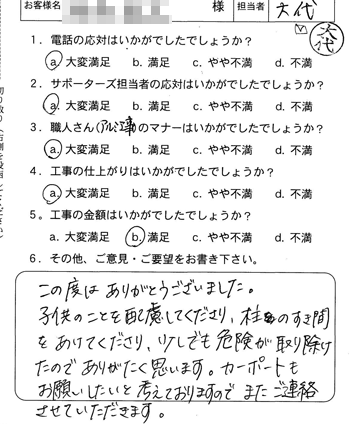 お客様名 様 担当者 大代
大代
1. 電話の応対はいかがでしたでしょうか?
a. 大変満足 b. 満足 c. やや不満 d. 不満
2. サポーターズ担当者の応対はいかがでしたでしょうか?
a. 大変満足 b. 満足 c. やや不満 d. 不満
3. 職人さん(アルミ工事)のマナーはいかがでしたでしょうか?
a. 大変満足 b. 満足 c. やや不満 d. 不満
4. 工事の仕上がりはいかがでしたでしょうか?
a. 大変満足 b. 満足 c. やや不満 d. 不満
5. 工事の金額はいかがでしたでしょうか?
a. 大変満足 b. 満足 c. やや不満 d. 不満
6. その他、ご意見・ご要望をお書き下さい。
この度は ありがとうございました。
子供のことを配慮してくださり、柱のすき間
をあけてくださり、少しでも危険が取り除け
たので ありがたく思います。カーポートも
お願いしたいと考えておりますので またご連絡
させていただきます。